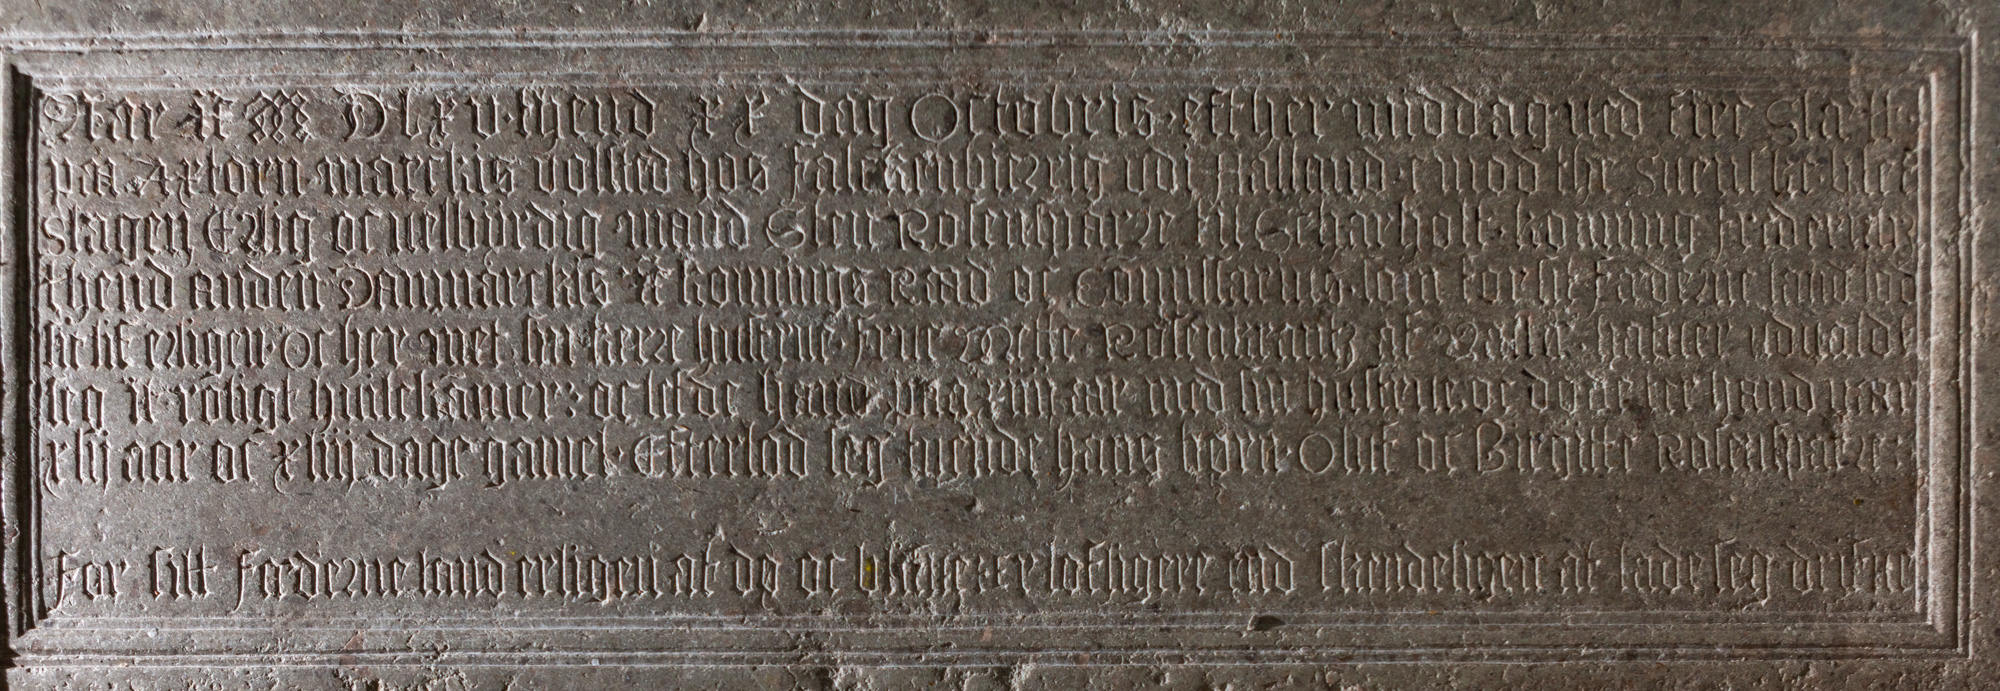 Aar et M D lxv thend xx dag Octobris efther middag ued fire Slætt
paa Axtorn marckis volsted hos falckenbierrig udi Halland emod the Suenske bleff
slagen Erlig oc uelbŭrdig mand Sten Rosensparre til Scharholt konning frederichs
thend anden Danmarckis &c konnings Raad oc Comissarius som for sit fæderne land lod
sit lif erligen Oc her met sin kerre hustrue frue Mette Rosenkrantz af Valle hafuer uduald
seg it roligt huilekamer: oc lefde hand udi xiii aar med sin hustrue oc døde ter hand uaar
xlij aar oc xliij dage gamel Efterlod seg tuende hans børn Oluf oc Birgitte Rosensparre:
For sitt fæderne land erligen at dø oc bliffue er lofligere end skendeligen at lade seg driffue